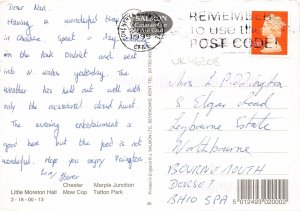 Dear Nan.
Having a wonderful time
in Cheshire spent a day
in the Peak District and went
into N. Wales yesterday. The
weather has been well with
only the occasional cloud burst
The evening entertainment is
good here but the food is not
wonderful. Hope you enjoy Paignton
Love
Little Moreton Hall
Chester
Mow Cop
Marple Junction
Tatton Park
2-18-00-13
SALMON
REMEMBER
to use the
POST CODE!
UK46308
Mrs L Piddington
8 Elgar Road
Leybourne Estate
Northbourne
BOURNEMOUTH
DORSET
BH10 SPA
5 012493 020002